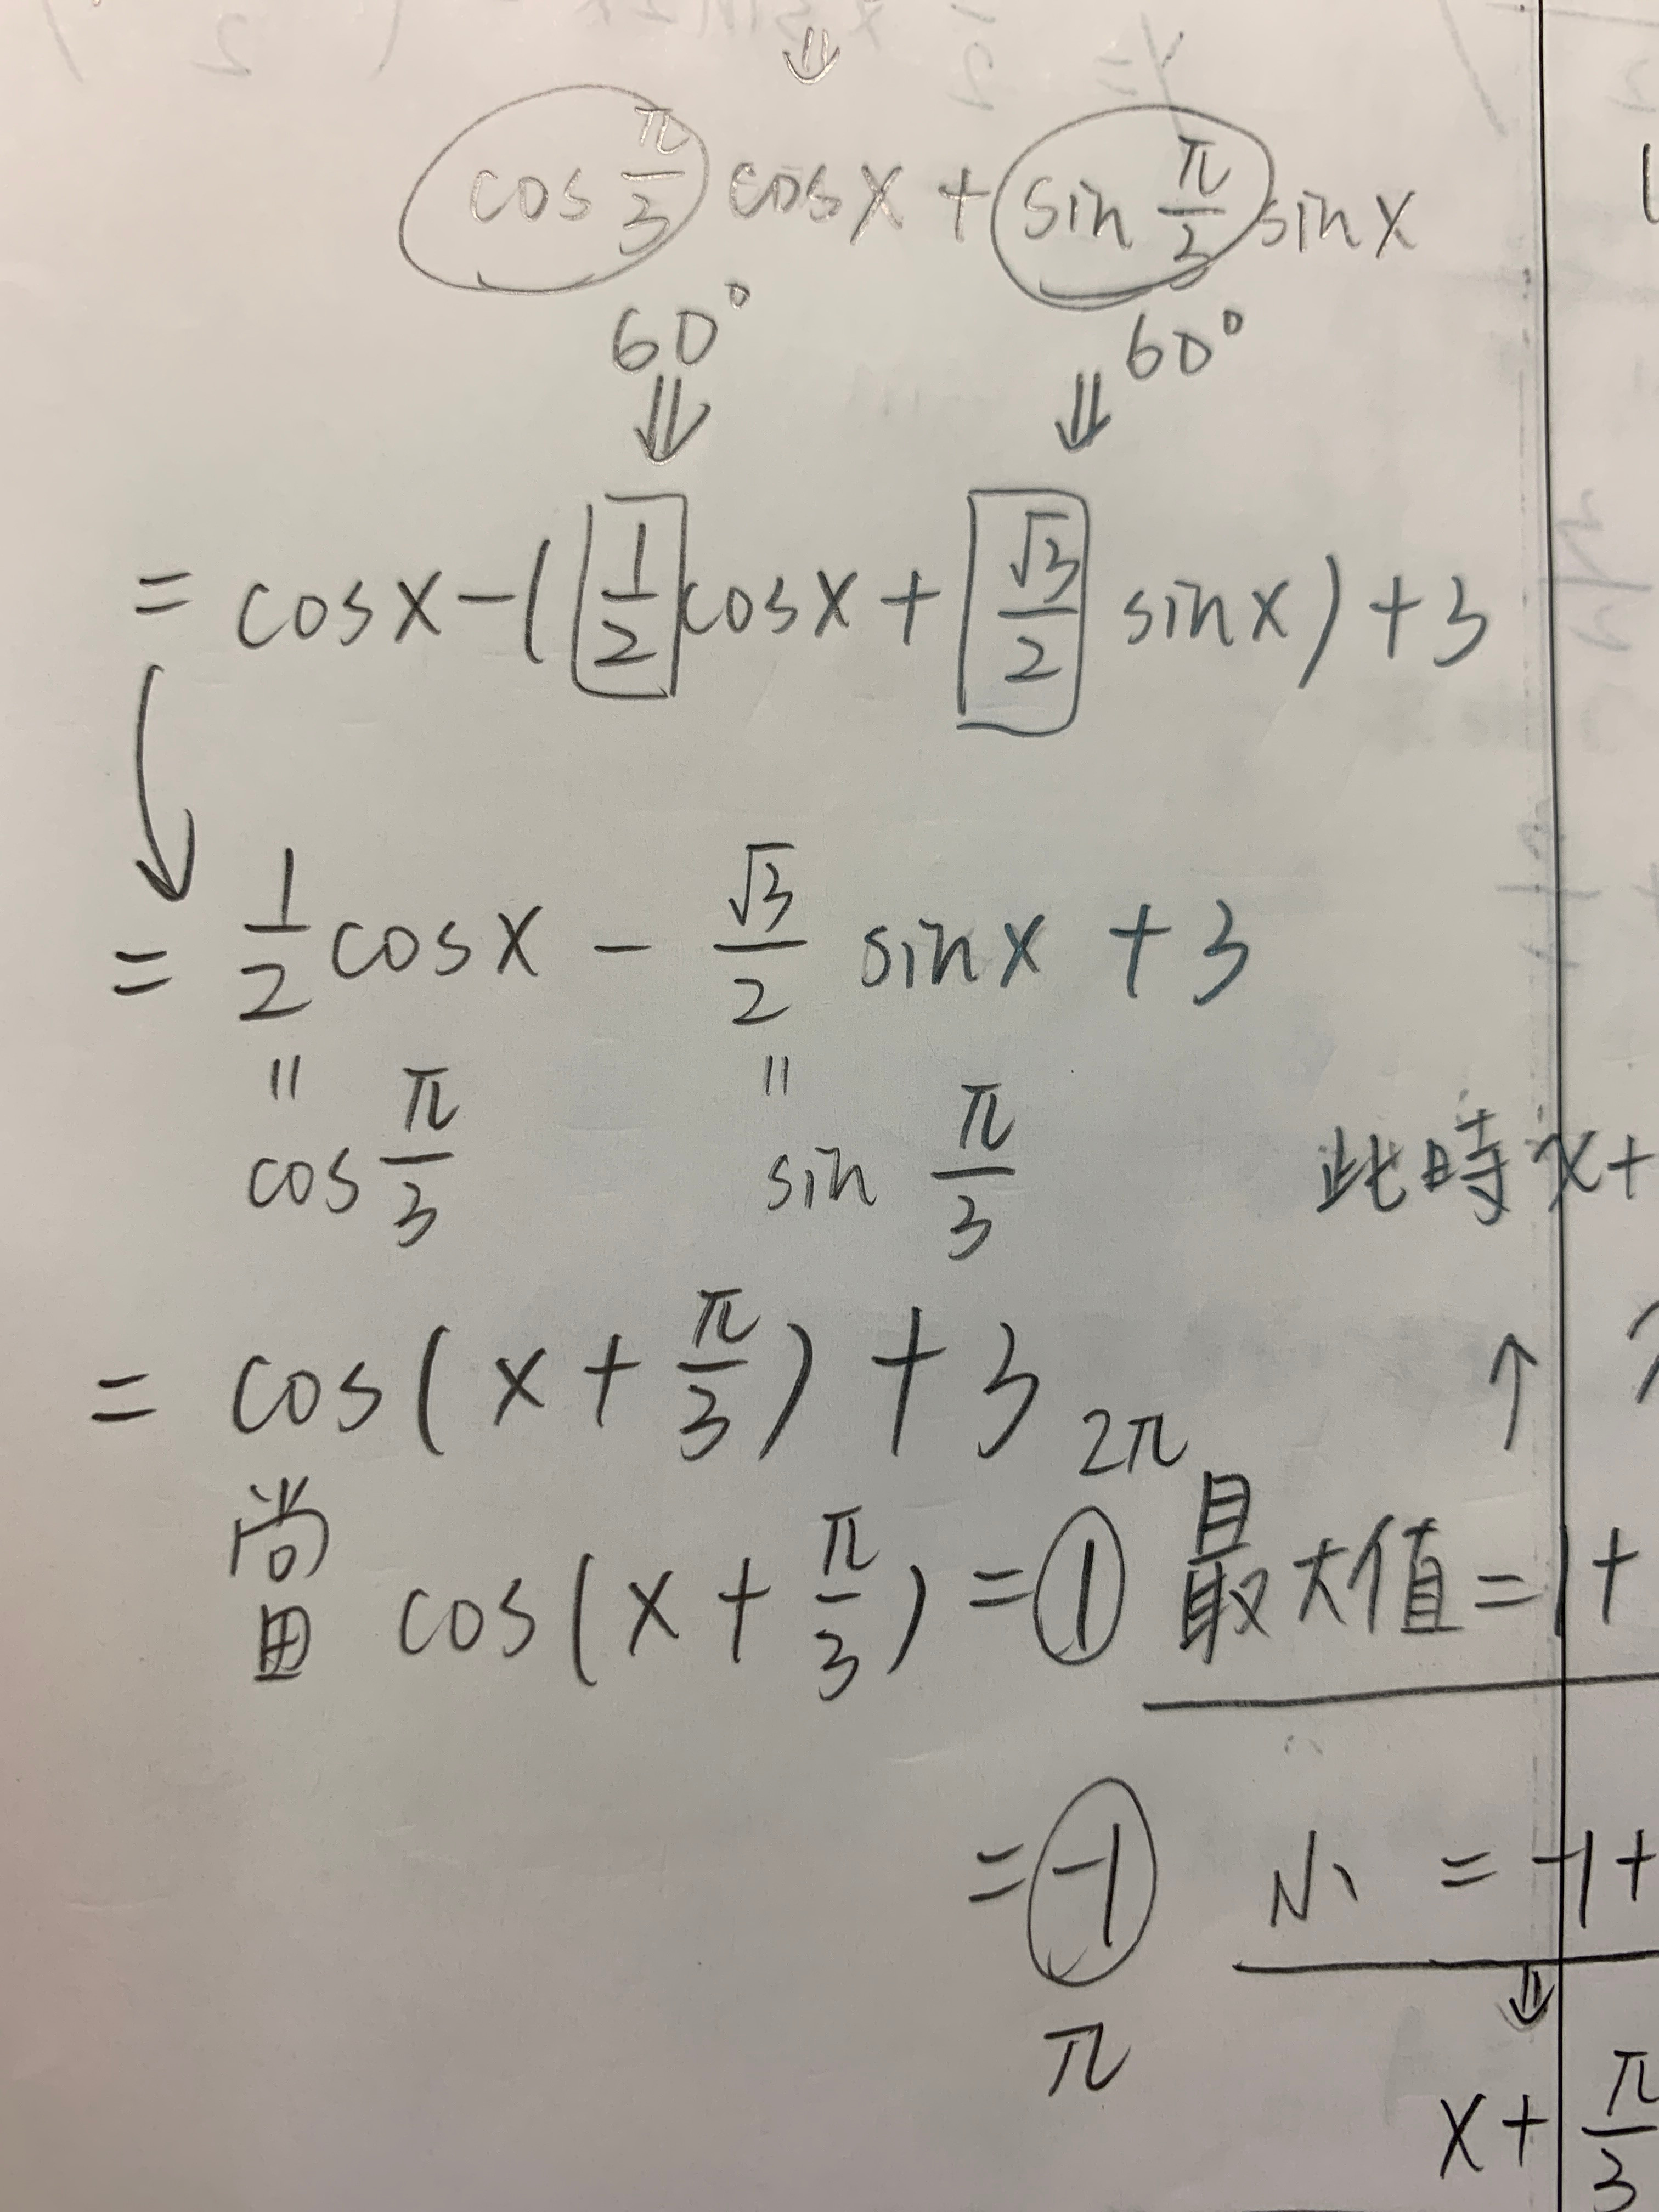 ⇓
cos π/3 cosx + sin π/3 sinx
60° 60°
⇓ ⇓
= cosx - ( 1/2 cosx + √3/2 sinx ) + 3
= 1/2 cosx - √3/2 sinx + 3
|| ||
cos π/3 sin π/3
此時 x+
= cos( x + π/3 ) + 3
↑
2π
當 cos( x + π/3 ) = 1 最大值 = 1 +
= -1 小 = -1 +
π
⇓
x + π/3